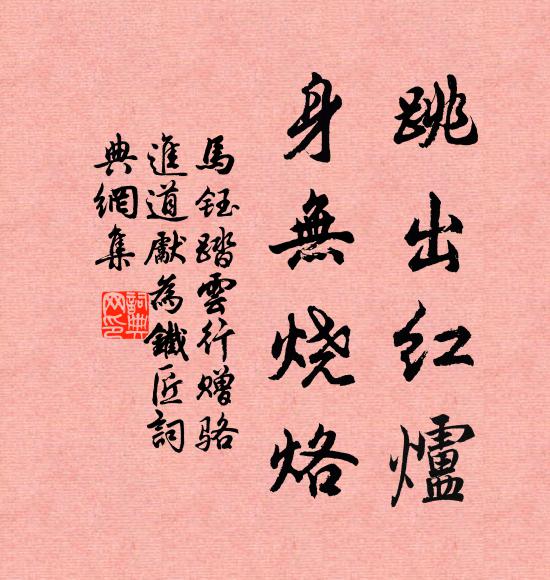 跳出红爐
身無烧烙
馬鈺踏雲行赠骆
進道獻為鐵匠詞
典網集
詞典网印